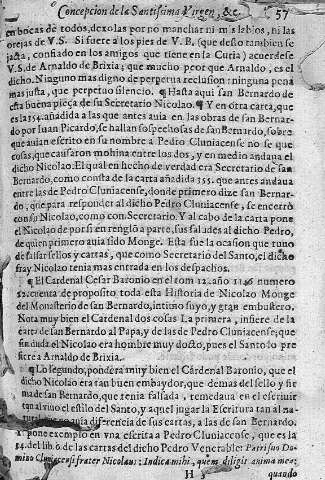 Concepcion de la Santissima Virgen, &c. 57
en bocas de todos, dexolas por no manchar ni mis labios, ni las
orejas de V.S. Si fuere a los pies de V.B. (que desto tambien se
jacta, confiado en los amigos que tiene en la Curia) acuerdese
V.S. de Arnaldo de Brixia, que mucho peor que Arnaldo, es el
dicho. Ninguno mas digno de perpetua reclusion: ninguna pena
mas justa, que perpetuo silencio. ¶ Hasta aqui san Bernardo de
esta buena pieça de su Secretario Nicolao. ¶ Y en otra carta, que
es la 354. añadida a las que antes auia en las obras de san Bernar-
do por Iuan Picardo, se hallan sospechosas de san Bernardo, sobre
que auian escrito en su nombre a Pedro Cluniacense no se que
cosas, que causaron mohina entre los dos, y en medio andaua el
dicho Nicolao. El qual en hecho de verdad era Secretario de san
Bernardo, como consta de la carta añadida 355. que antes andaua
entre las de Pedro Cluniacense, donde primero dize san Bernar-
do, que para responder al dicho Pedro Cluniacense, se encerrò
con su Nicolao, como con Secretario. Y al cabo de la carta pone
el Nicolao de por si en renglõ a parte, sus saludes al dicho Pedro,
de quien primero auia sido Monge. Esta fue la ocasion que tuuo
de falsar sellos y cartas, que como Secretario del Santo, el dicho
fray Nicolao tenia mas entrada en los despachos.
¶ El Cardenal Cesar Baronio en el tom 12. año 1146 numero
12. cuenta de proposito, toda esta Historia de Nicolao Monge
del Monasterio de san Bernardo, intimo suyo, y gran embustero.
Nota muy bien el Cardenal dos cosas. La primera, infiere de la
carta de san Bernardo al Papa, y de las de Pedro Cluniacense; que
sin duda el Nicolao era hombre muy docto, pues el Santo lo pre
fiere a Arnaldo de Brixia.
¶ Lo segundo, pondera muy bien el Cardenal Baronio, que el
dicho Nicolao era san buen embaydor, que demas del sello y fir
ma de san Bernardo, que tenia falsada, remedaua en el escriuir
tan al viuo el estilo del Santo, y aquel jugar la Escritura tan al na-
tural, que no auia diferencia de sus cartas, a las de san Bernardo.
pone exemplo en vna escrita a Pedro Cluniacense, que es la
34. del lib. 6. de las cartas del dicho Pedro Venerable: Patri suo Do-
mino Cluniacensi frater Nicolaus: Indica mihi, quem diligit anima mea:
H 5 quando